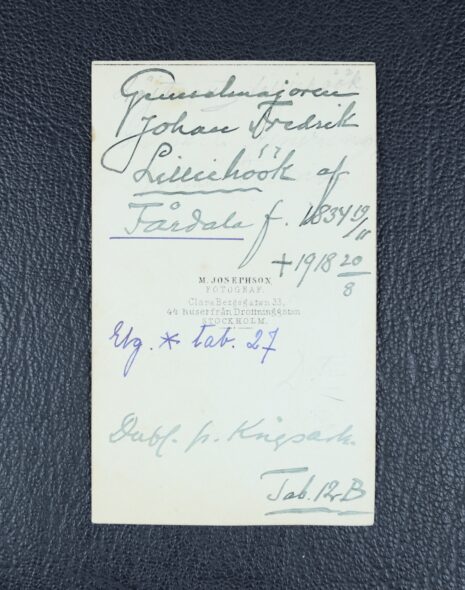 Generalmajoren
Johan Fredrik
Lilliehöök af
Fårdala f. 1834 19/11
† 1918 20/8
M. JOSEPHSON,
FOTOGRAF.
Clara Bergsgatan 23,
44 hus från Drottninggatan
STOCKHOLM.
Elg. * tab. 27
Dubl. fr. Krigsark.
Tab. 12 B